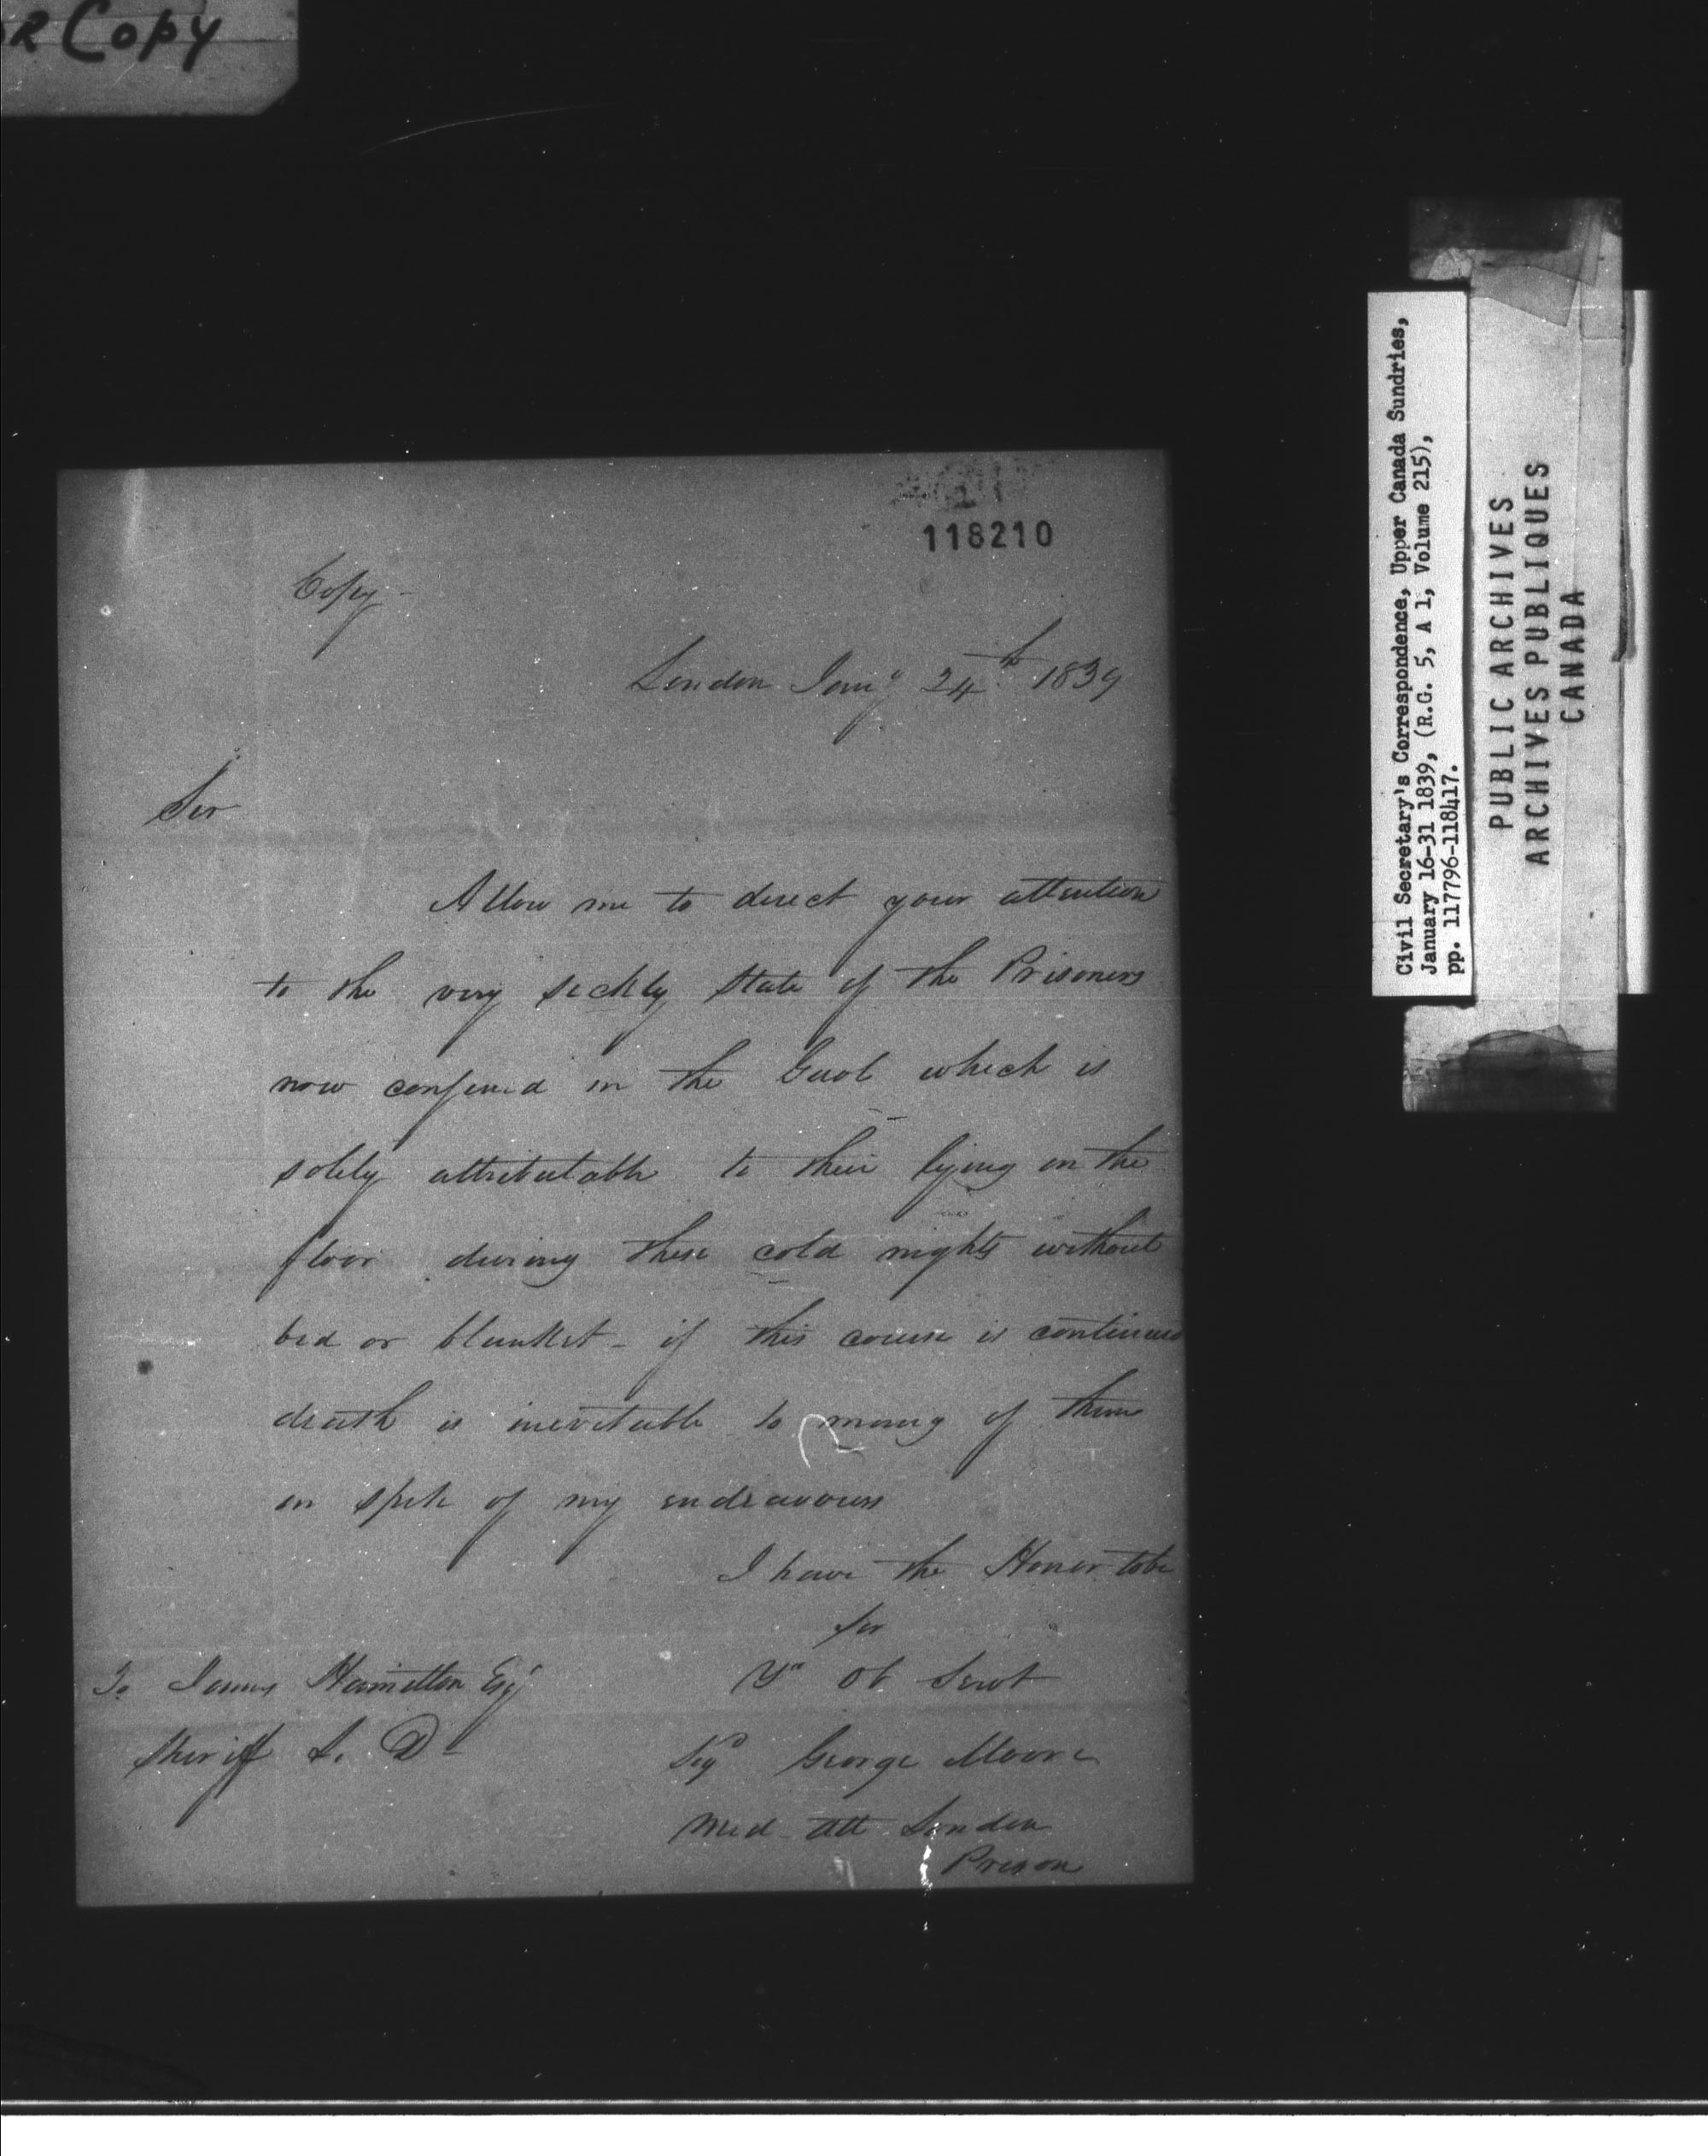 R Copy
118210
Copy -
London Jany 24th 1839
Sir
Allow me to direct your attention
to the very sickly state of the Prisoners
now confined in the Gaol which is
solely attributable to their lying on the
floor during these cold nights without
bed or blanket - if this course is continued
death is inevitable to many of them
in spite of my endeavours
I have the Honor to be
Sir
Yr Ob Servt
To James Hamilton Esqr
Sheriff L. D-
Sigd George Moore
Med Att London
Prison
Civil Secretary's Correspondence, Upper Canada Sundries,
January 16-31 1839, (R.G. 5, A 1, Volume 215),
pp. 117796-118417.
PUBLIC ARCHIVES
ARCHIVES PUBLIQUES
CANADA